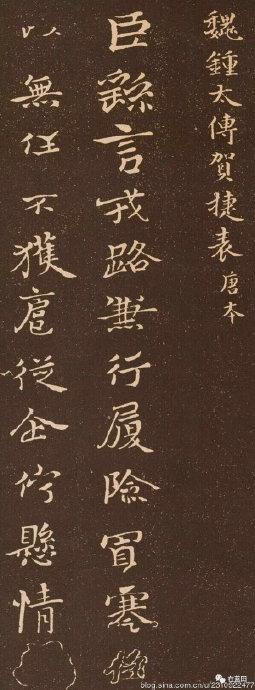 魏鍾太傅賀捷表 唐本
臣繇言戎路兼行履險冒寒
以無任不獲扈從企佇懸情
blog.sina.com.cn/u/2310622477